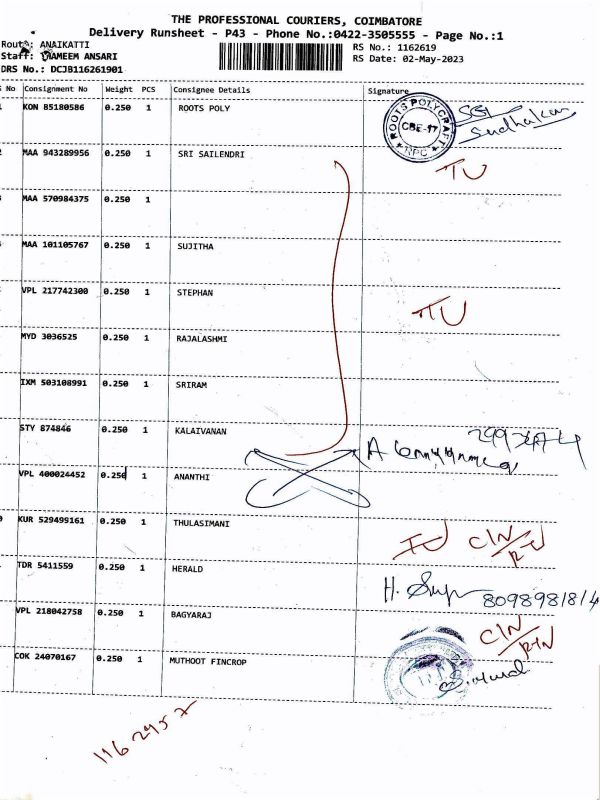 THE PROFESSIONAL COURIERS, COIMBATORE
Delivery Runsheet - P43 - Phone No.:0422-3505555 - Page No.:1
Route: ANAIKATTI
RS No.: 1162619
Staff: THAMEEM ANSARI
RS Date: 02-May-2023
DRS No.: DCJB116261901
S No Consignment No Weight PCS Consignee Details Signature
KON 85180586 0.250 1 ROOTS POLY
ROOTS POLYCRAFT CBE-17 RPC
Sudhakar
MAA 943289956 0.250 1 SRI SAILENDRI
TU
MAA 570984375 0.250 1
MAA 101105767 0.250 1 SUJITHA
VPL 217742300 0.250 1 STEPHAN
TU
MYD 3036525 0.250 1 RAJALASHMI
IXM 503108991 0.250 1 SRIRAM
STY 874846 0.250 1 KALAIVANAN
VPL 400024452 0.250 1 ANANTHI
KUR 529499161 0.250 1 THULASIMANI
CIN
TDR 5411559 0.250 1 HERALD
H.
8098981814
VPL 218042758 0.250 1 BAGYARAJ
CIN
RTN
COK 24070167 0.250 1 MUTHOOT FINCROP
1162957